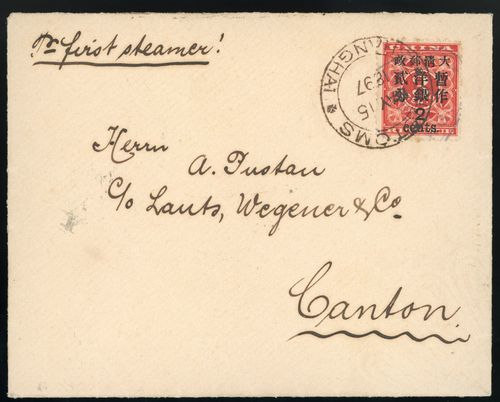 Pr first steamer!
CHINA
大清郵政
暫作洋銀貳分
2
cents.
CUSTOMS SHANGHAI
15
97
Herrn
A. Pustau
c/o Lauts, Wegener & Co.
Canton.